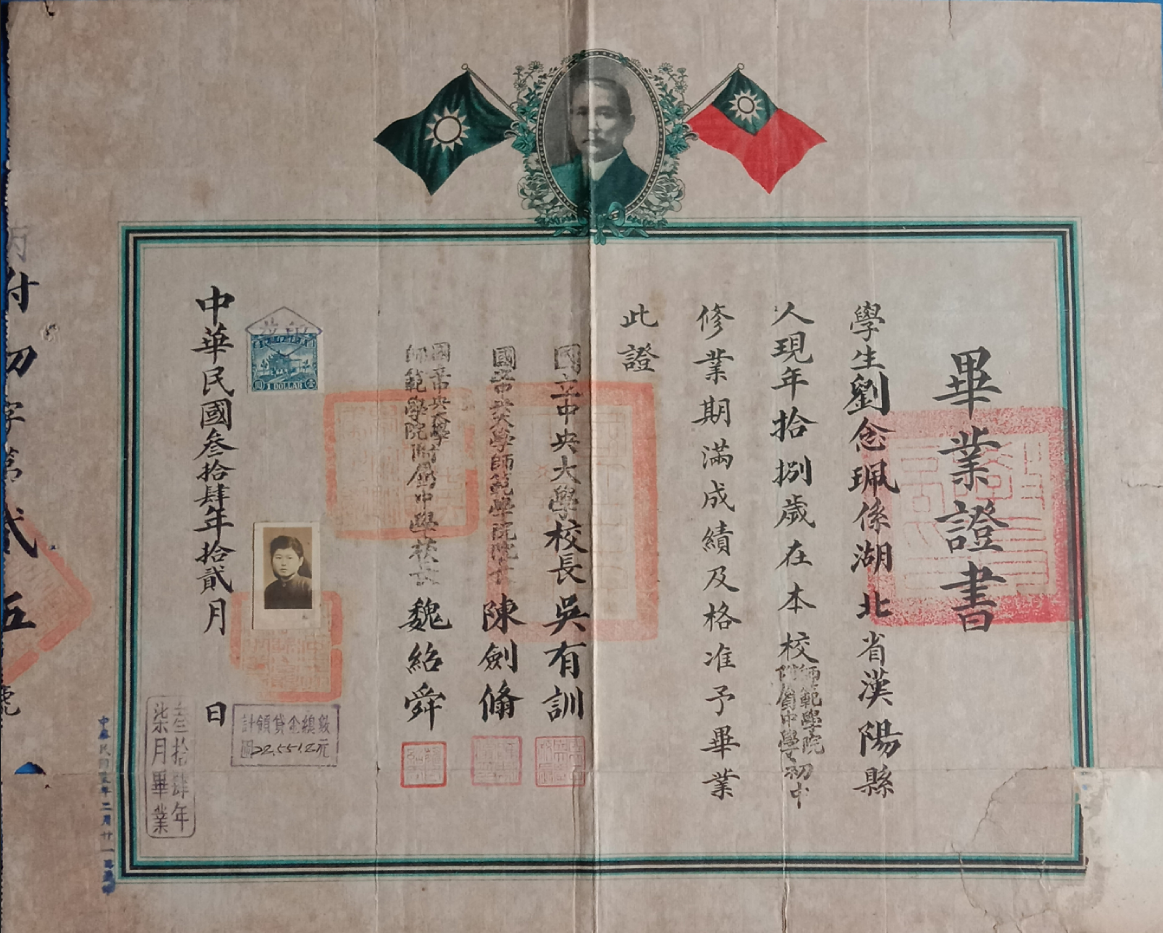 畢業證書
學生劉念珮係湖北省漢陽縣
人現年拾捌歲在本校師範學院附屬中學初中
修業期滿成績及格准予畢業
此證
國立中央大學校長吳有訓
國立中央大學師範學院院長陳劍脩
國立中央大學師範學院附屬中學校長魏紹舜
1 DOLLAR
中華民國叁拾肆年拾貳月 日
貸金總數
計領
22,551.2元
叁拾肆年
柒月畢業
附初字第貳 五號